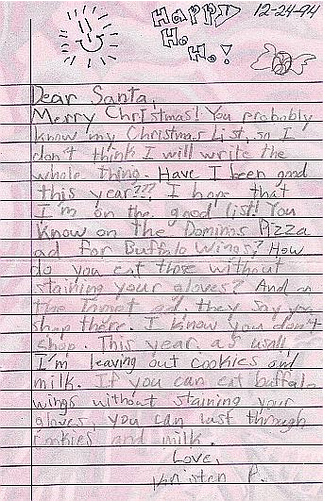 Happy 12-24-94
Ho,
Ho!
Dear Santa,
Merry Christmas! You probably
know my Christmas List, so I
don't think I will write the
whole thing. Have I been good
this year??? I hope that
I'm on the good list! You
know on the Dominos Pizza
ad for Buffalo Wings? How
do you eat those without
staining your gloves? And on
the Target ad, they say you
shop there. I know you don't
shop. This year, as usual
I'm leaving out cookies and
milk. If you can eat buffalo
wings without staining your
gloves, you can last through
cookies and milk.
Love,
Kristen P.